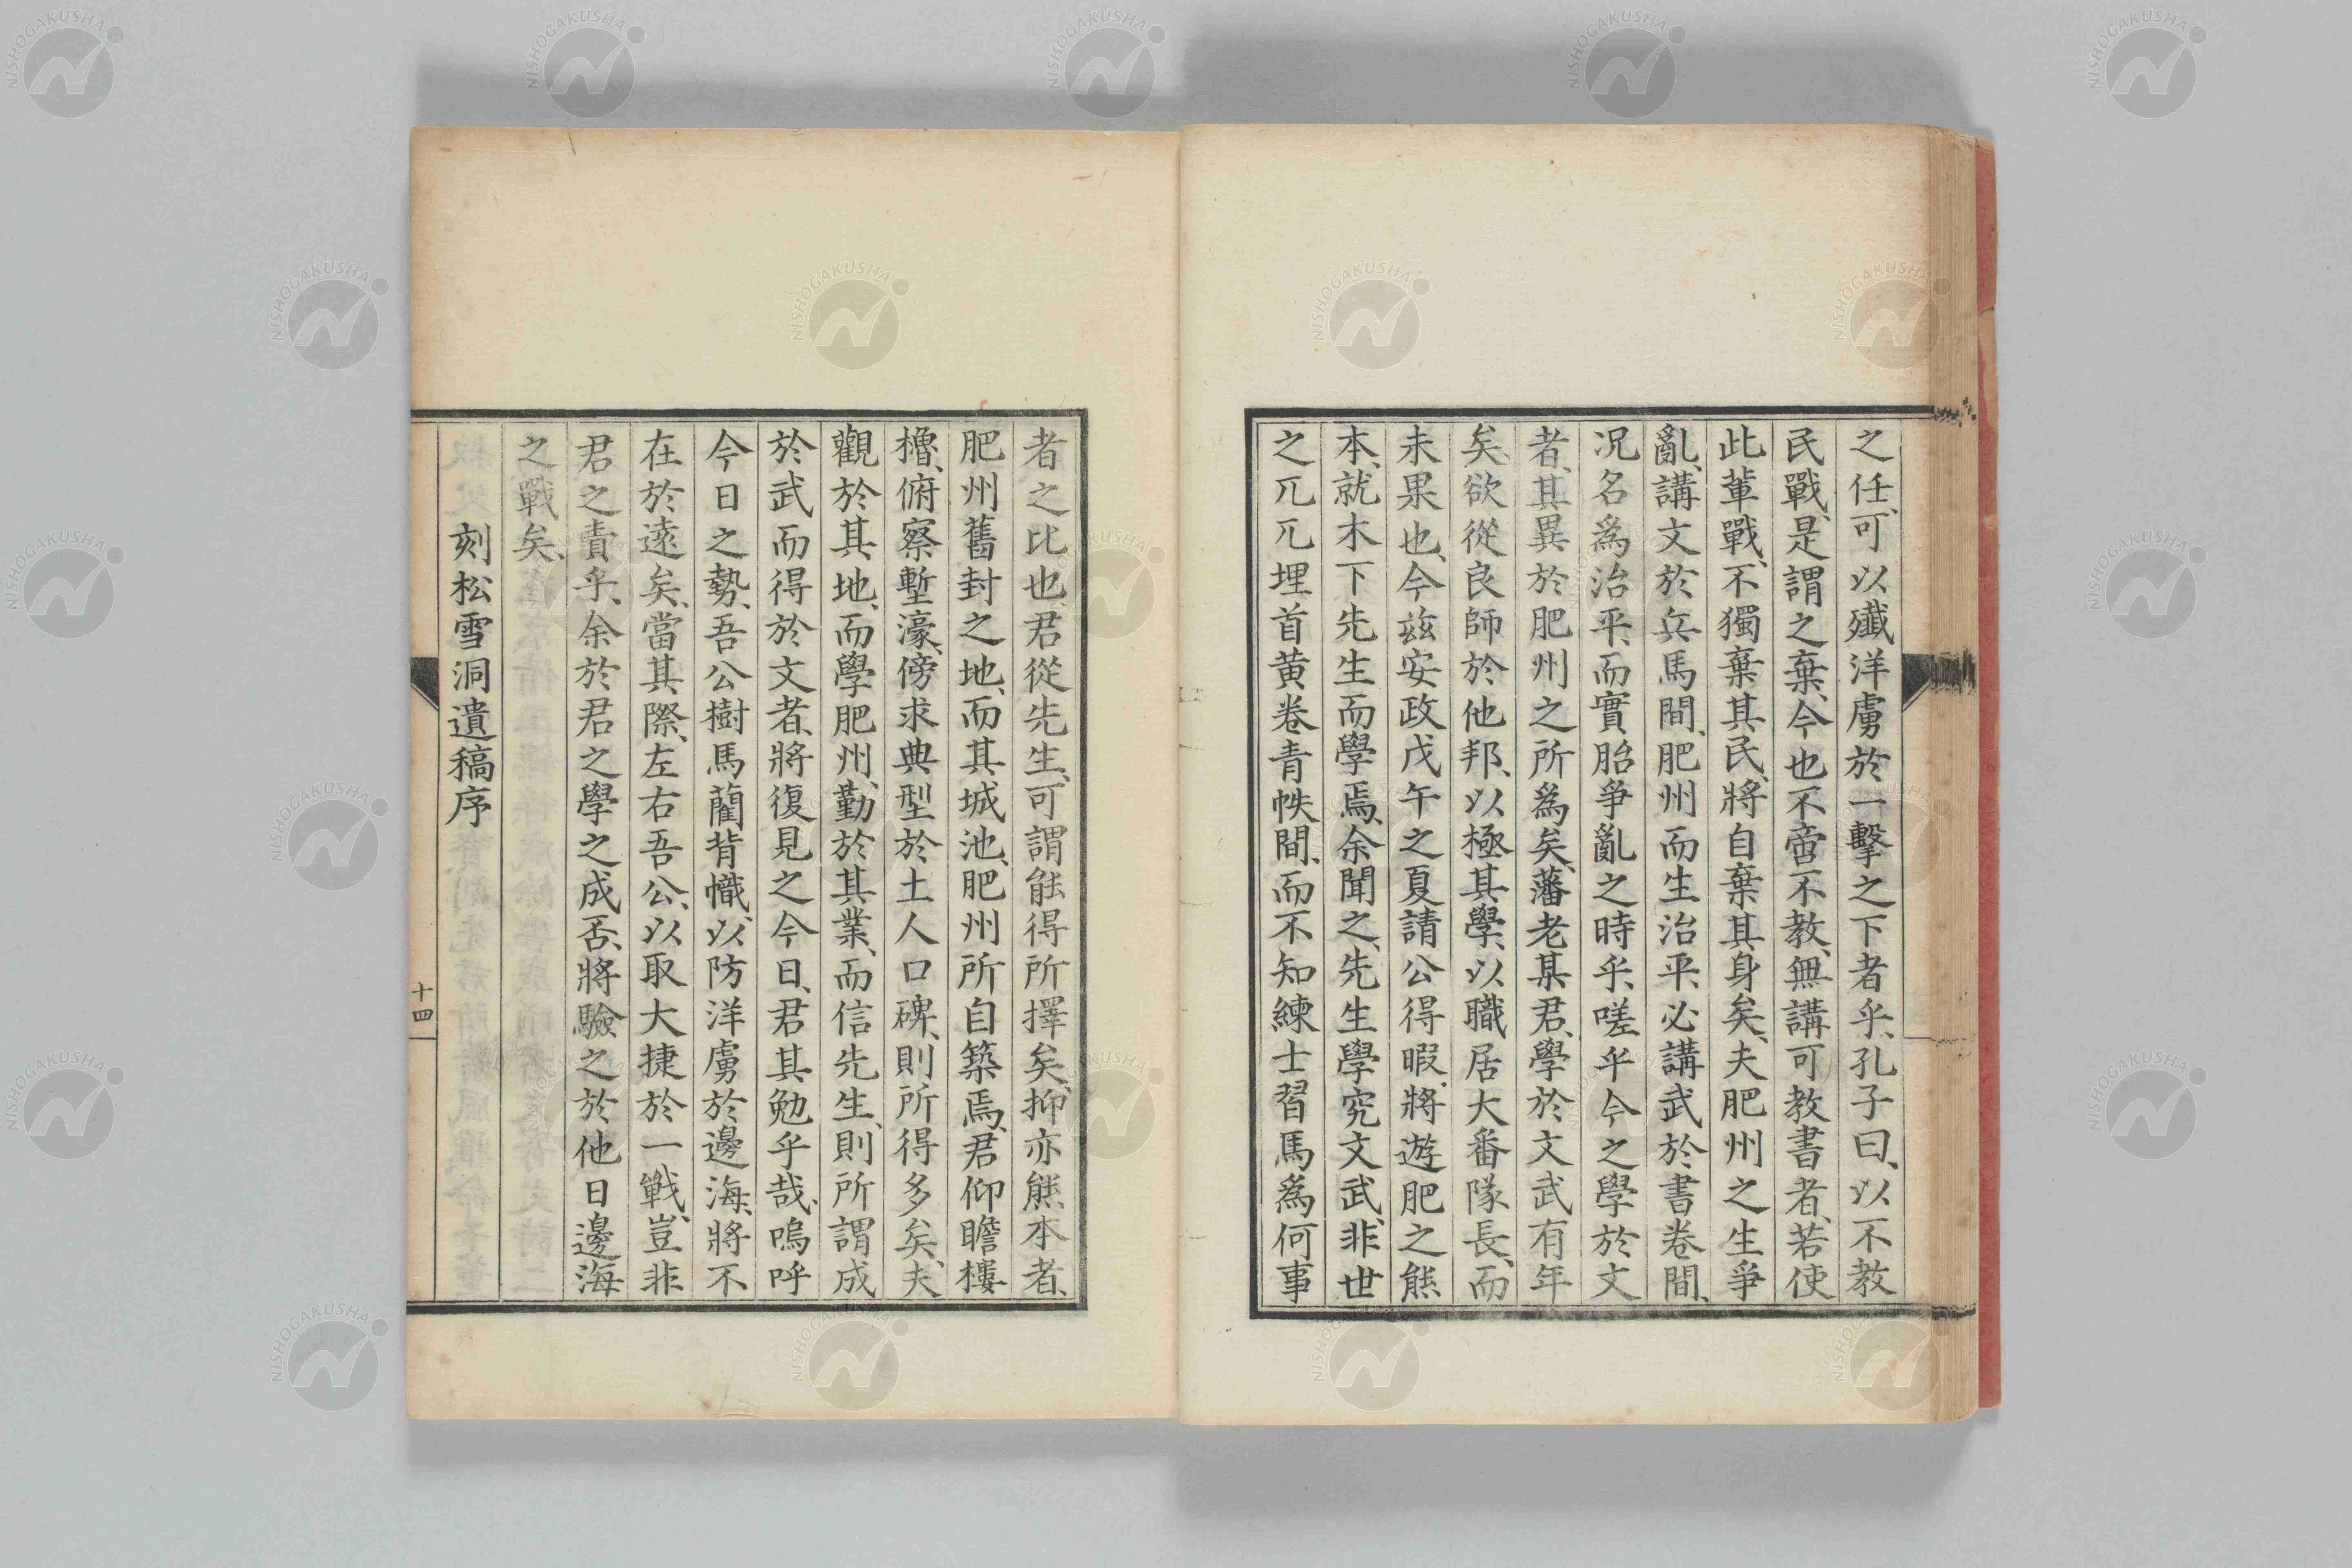 之任、可以殲洋虜於一擊之下者乎、孔子曰、以不教
民戰、是謂之棄、今也不啻不教、無講可教書者、若使
此輩戰、不獨棄其民、將自棄其身矣、夫肥州之生爭
亂、講文於兵馬間、肥州而生治平、必講武於書卷間、
况名爲治平、而實胎爭亂之時乎、嗟乎今之學於文
者、其異於肥州之所爲矣、藩老某君、學於文武有年
矣、欲從良師於他邦、以極其學、以職居大番隊長、而
未果也、今兹安政戊午之夏請公得暇、將遊肥之熊
本、就木下先生而學焉、余聞之、先生學究文武、非世
之兀兀埋首黄卷青帙間、而不知練士習馬爲何事
者之比也、君從先生、可謂能得所擇矣、抑亦熊本者、
肥州舊封之地、而其城池、肥州所自築焉、君仰瞻樓
櫓、俯察塹濠、傍求典型於土人口碑、則所得多矣、夫
觀於其地、而學肥州、勤於其業、而信先生、則所謂成
於武而得於文者、將復見之今日、君其勉乎哉、嗚呼
今日之勢、吾公樹馬藺背幟、以防洋虜於邊海、將不
在於遠矣、當其際、左右吾公、以取大捷於一戰、豈非
君之責乎、余於君之學之成否、將驗之於他日邊海
之戰矣、
刻松雪洞遺稿序
十四
NISHOGAKUSHA